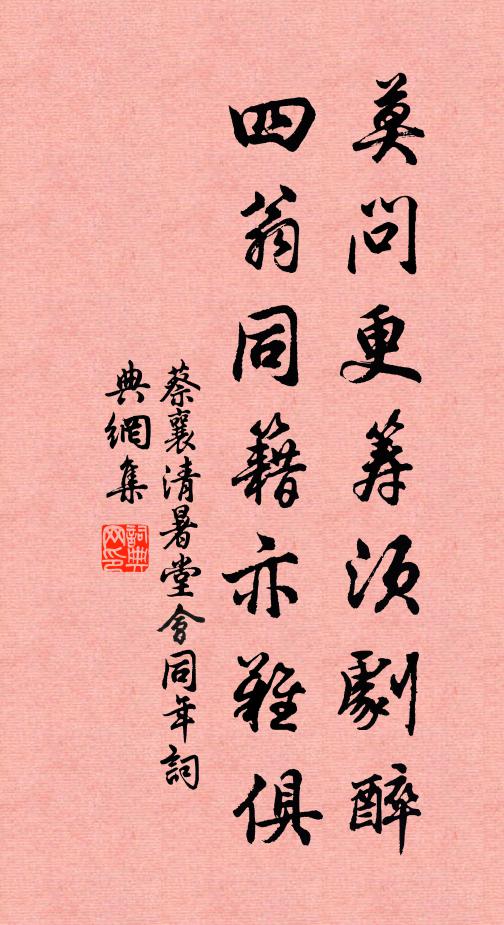 莫問更筹須劇醉
四翁同籍亦難俱
蔡襄清暑堂會同年詞
典網集
詞典
网印